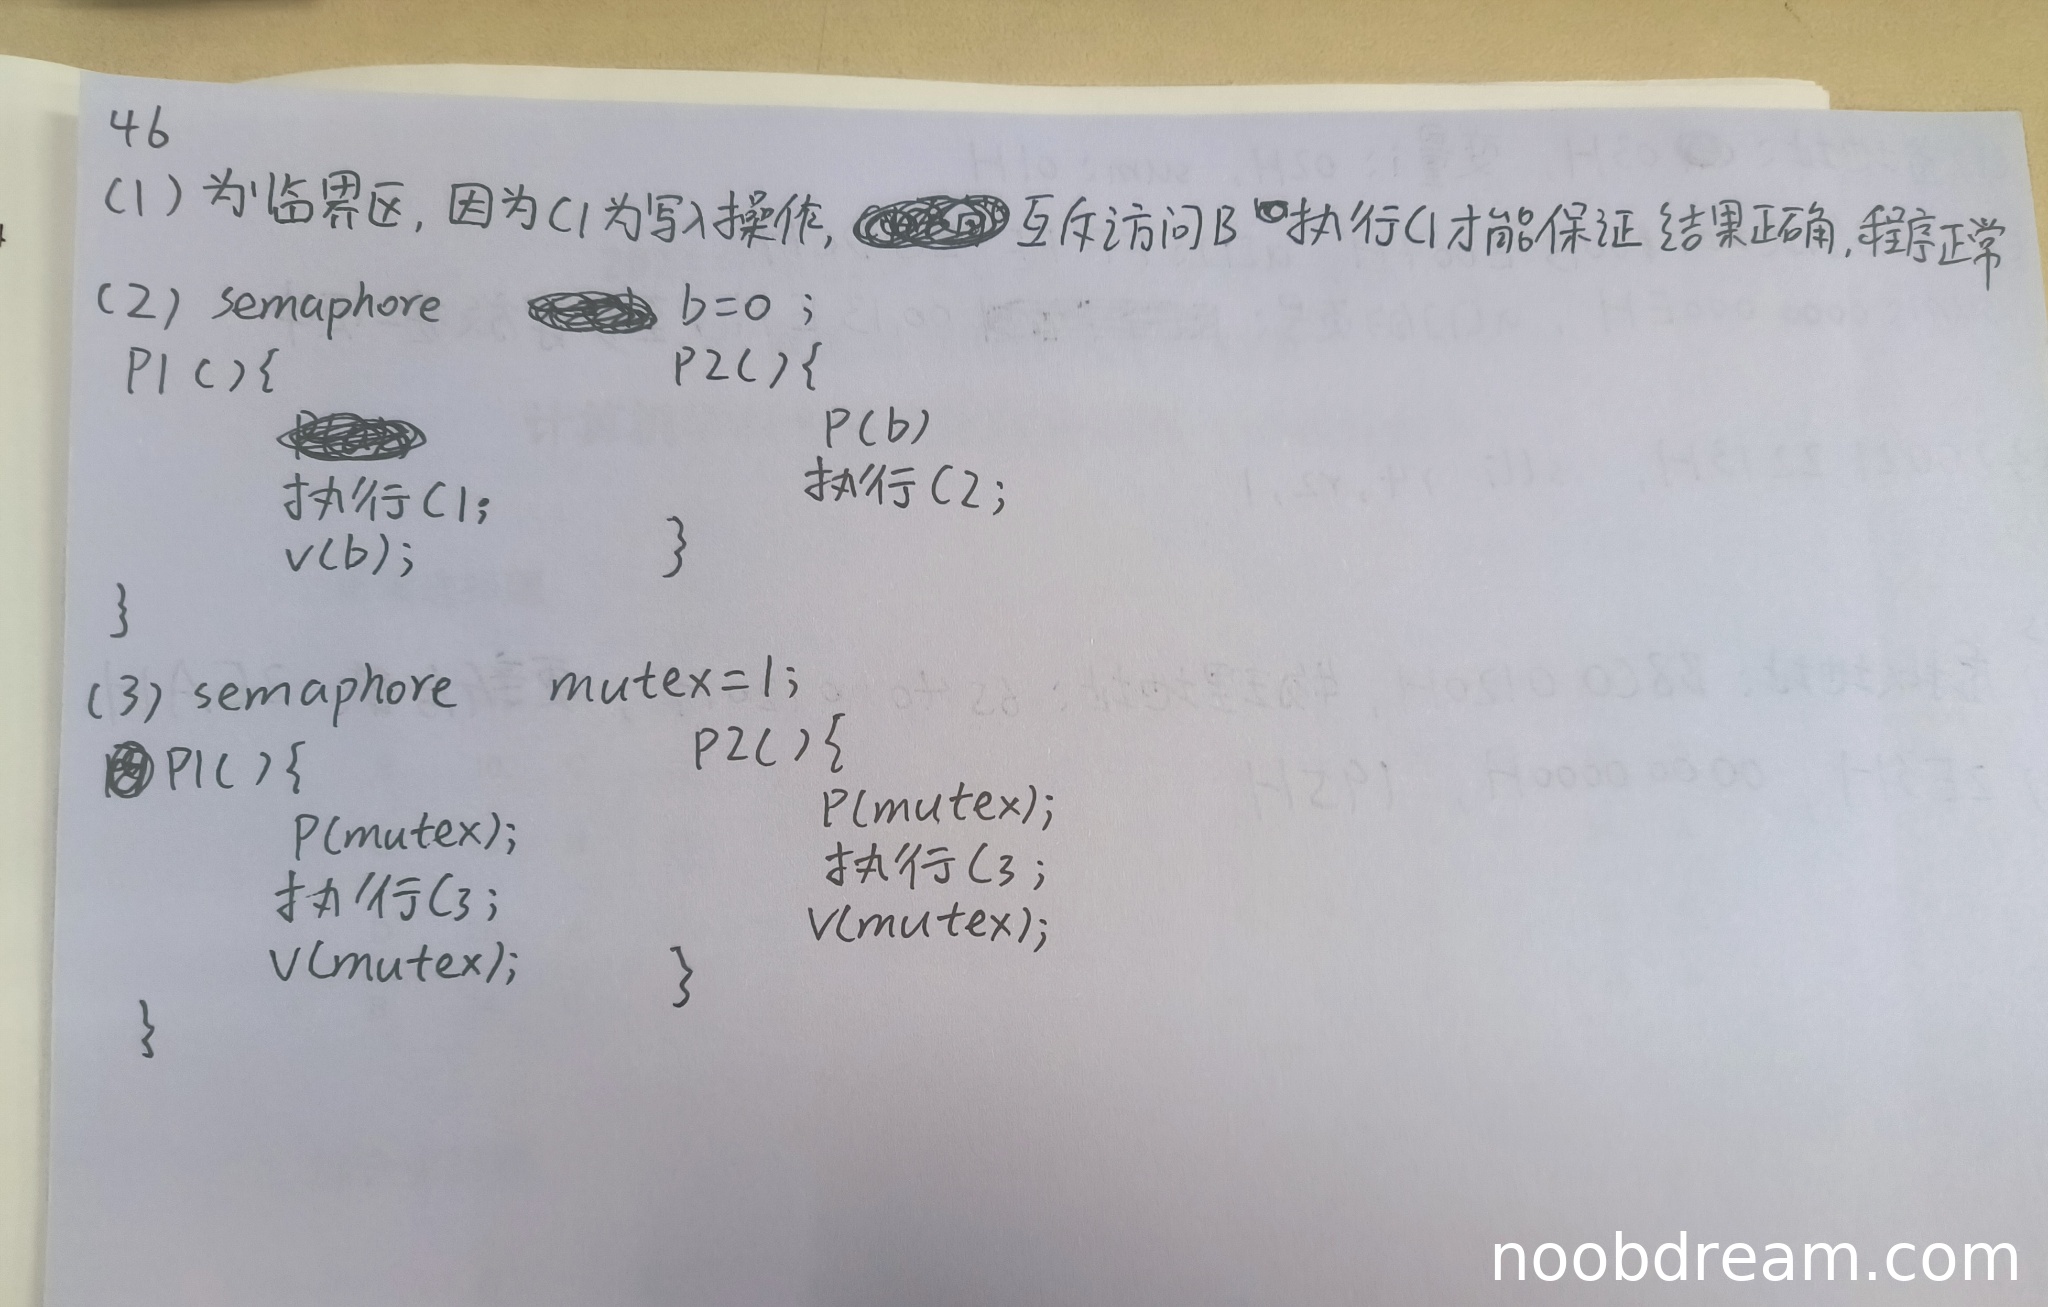 46
(1) 为临界区, 因为C1为写入操作, 互斥访问B 执行C1才能保证结果正确, 程序正常
(2) semaphore b=0 ;
P1 ( ) { P2( ) {
P(b)
执行C1; 执行C2;
V(b); }
}
(3) semaphore mutex=1;
P1( ) { P2( ) {
P(mutex); P(mutex);
执行C3; 执行C3;
V(mutex); V(mutex);
} }
noobdream.com